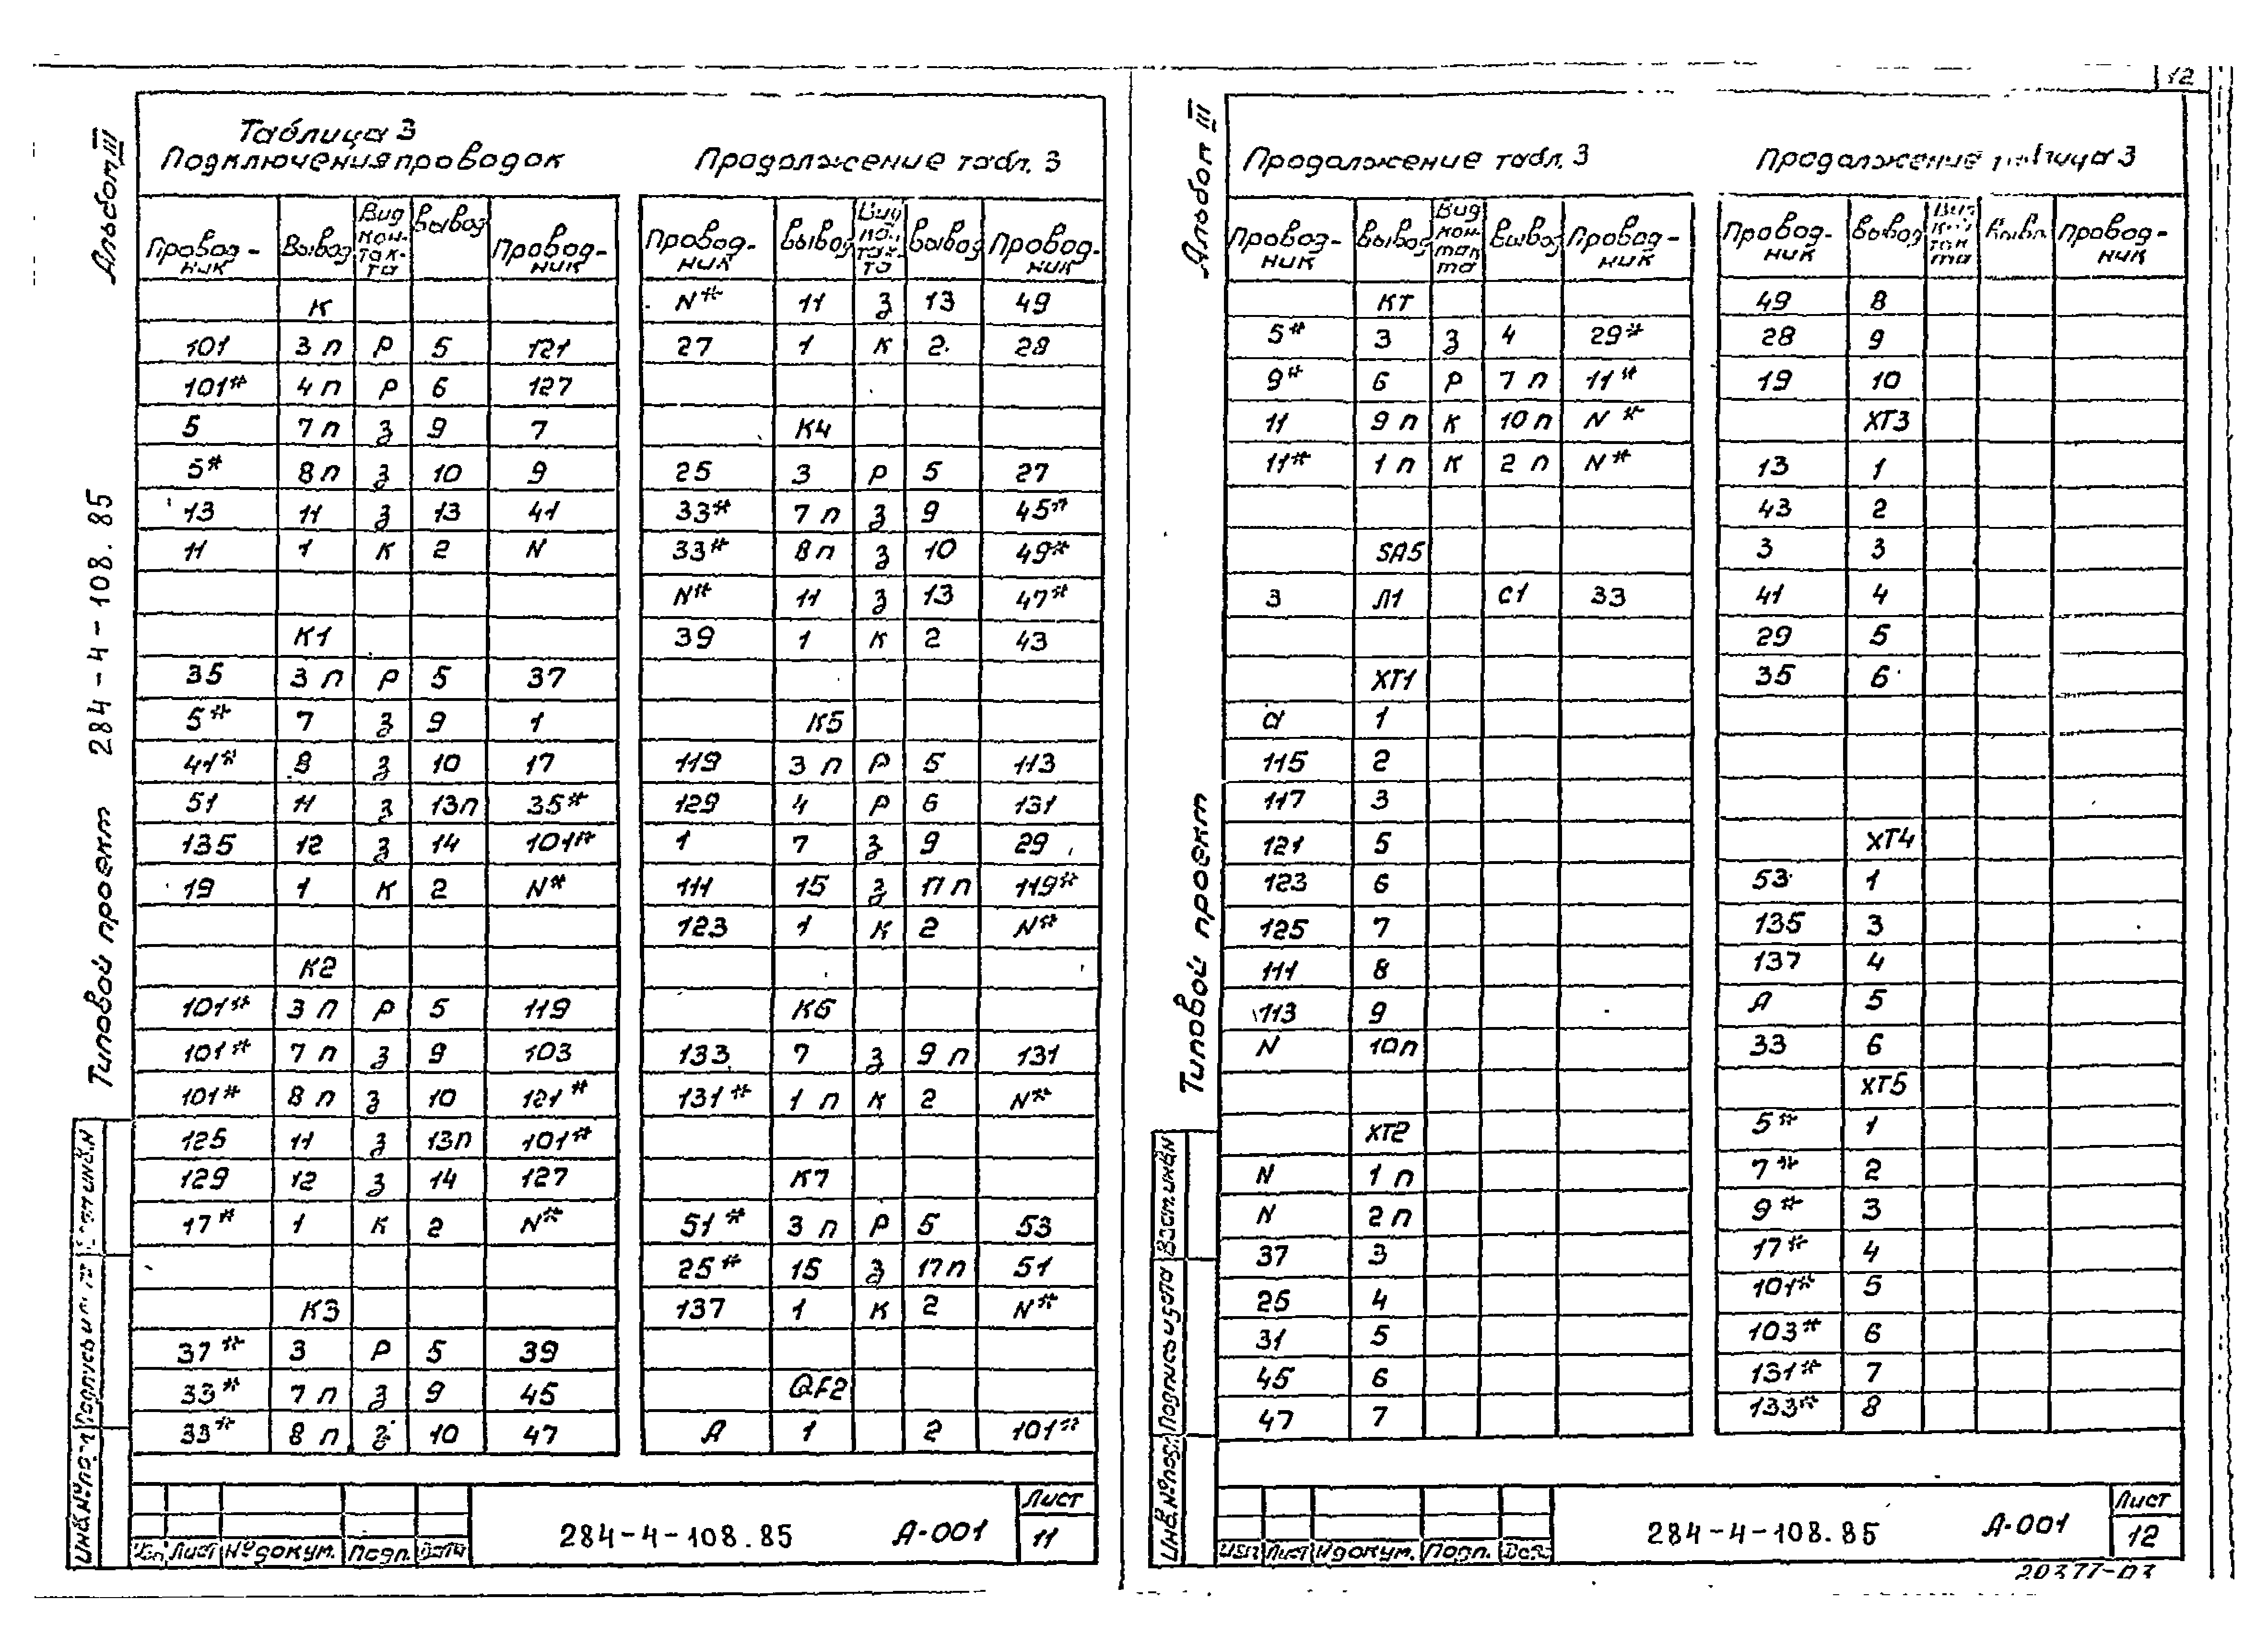 12
Альбом III
Типовой проект 284-4-108.85
Таблица 3
Подключения проводок
Провод-ник Вывод Вид кон-так-та Вывод Провод-ник
К
101 3п Р 5 121
101* 4п Р 6 127
5 7п З 9 7
5* 8п З 10 9
13 11 З 13 41
11 1 К 2 N
К1
35 3п Р 5 37
5* 7 З 9 1
41* 8 З 10 17
51 11 З 13п 35*
135 12 З 14 101*
19 1 К 2 N*
К2
101* 3п Р 5 119
101* 7п З 9 103
101* 8п З 10 121*
125 11 З 13п 101*
129 12 З 14 127
17* 1 К 2 N*
К3
37* 3 Р 5 39
33* 7п З 9 45
33* 8п З 10 47
Продолжение табл. 3
Провод-ник Вывод Вид кон-так-та Вывод Провод-ник
N* 11 З 13 49
27 1 К 2 28
К4
25 3 Р 5 27
33* 7п З 9 45*
33* 8п З 10 49*
N* 11 З 13 47*
39 1 К 2 43
К5
119 3п Р 5 113
129 4 Р 6 131
1 7 З 9 29
111 15 З 17п 119*
123 1 К 2 N*
К6
133 7 З 9п 131
131* 1п К 2 N*
К7
51* 3п Р 5 53
25* 15 З 17п 51
137 1 К 2 N*
QF2
А 1 2 101*
Изм Лист № докум. Подп. Дата
284-4-108.85 А-001
Лист
11
Инв.№ подл Подпись и
Альбом III
Типовой проект
Продолжение табл. 3
Провод-ник Вывод Вид кон-так-та Вывод Провод-ник
КТ
5* 3 З 4 29*
9* 6 Р 7п 11*
11 9п К 10п N*
11* 1п К 2п N*
SA5
3 Л1 С1 33
ХТ1
а 1
115 2
117 3
121 5
123 6
125 7
111 8
113 9
N 10п
ХТ2
N 1п
N 2п
37 3
25 4
31 5
45 6
47 7
Продолжение таблица 3
Провод-ник Вывод Вид кон-так-та Вывод Провод-ник
49 8
28 9
19 10
ХТ3
13 1
43 2
3 3
41 4
29 5
35 6
ХТ4
53 1
135 3
137 4
А 5
33 6
ХТ5
5* 1
7* 2
9* 3
17* 4
101* 5
103* 6
131* 7
133* 8
Изм Лист N докум. Подп. Дата
284-4-108.85 А-001
Лист
12
Инв.№ подл Подпись и дата Взам.инв.N
20377-03